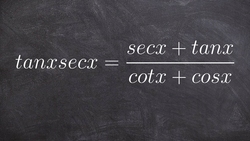 tanxsecx = \frac{secx + tanx}{cotx + cosx}